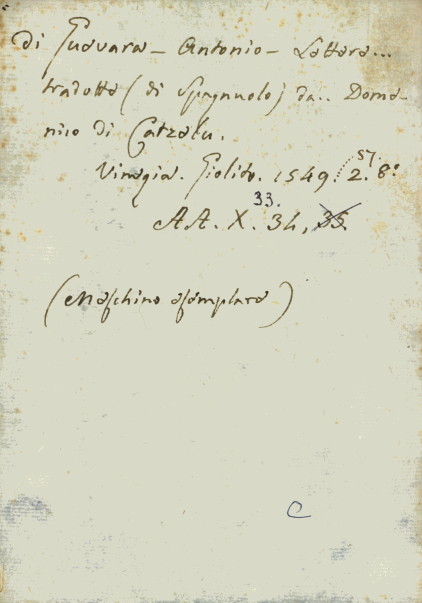 di Guevara - Antonio - Lettere...
tradotte (di Spagnuolo) da.. Dome-
nico di Catzelu.
Vinegia. Giolito. 1549.......51. 2. 8º
33.
AA. X. 34, 35.
(Meschino esemplare)
C